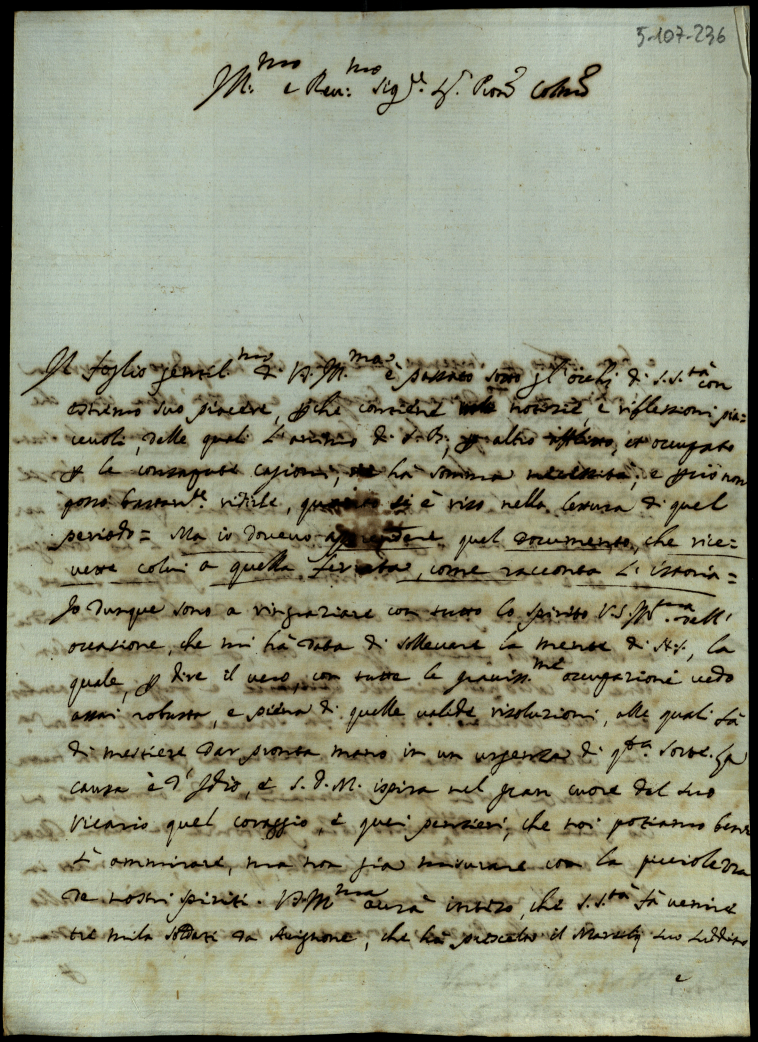 5-107-236
Ill:mo e Rev:mo Sig.r Sig.r Pron Colmo
Il foglio gentil.mo di V.S. Ill.ma è passato sotto gl'occhi di S. S.tà con
estremo suo piacere, perche contiene notizie, e riflessioni pia=
cevoli, delle quali l'animo di S. B., per altro afflitto, et occupato
per le consapute cagioni, ha somma necessità, e perciò non
posso bastan.te ridirle, quanto si è riso nella lettura di quel
periodo= Ma io dovevo apprendere quel documento, che rice=
vette colui a quella, come racconta l'istoria=
Io dunque sono a ringraziare con tutto lo spirito V.S. Ill.ma dell'
occasione, che mi hà data di sollevare la mente di N. S., la
quale, per dire il vero, con tutte le graviss.me occupazioni vedo
assai robusta, e piena di quelle valide risoluzioni, alle quali fà
di mestiere dar pronta mano in un urgenza di q.ta sorte. La
causa è d'Iddio, e S. D. M. ispira nel gran cuore del suo
Vicario quel coraggio, e quei pensieri, che noi potiamo bensì
ammirare, ma non già misurare con la picciolezza
de nostri spiriti. V.S. Ill.ma avrà inteso, che S. S.tà fà venire
tre mila soldati da Avignone, che hà prescelto il March. suo suddito
e